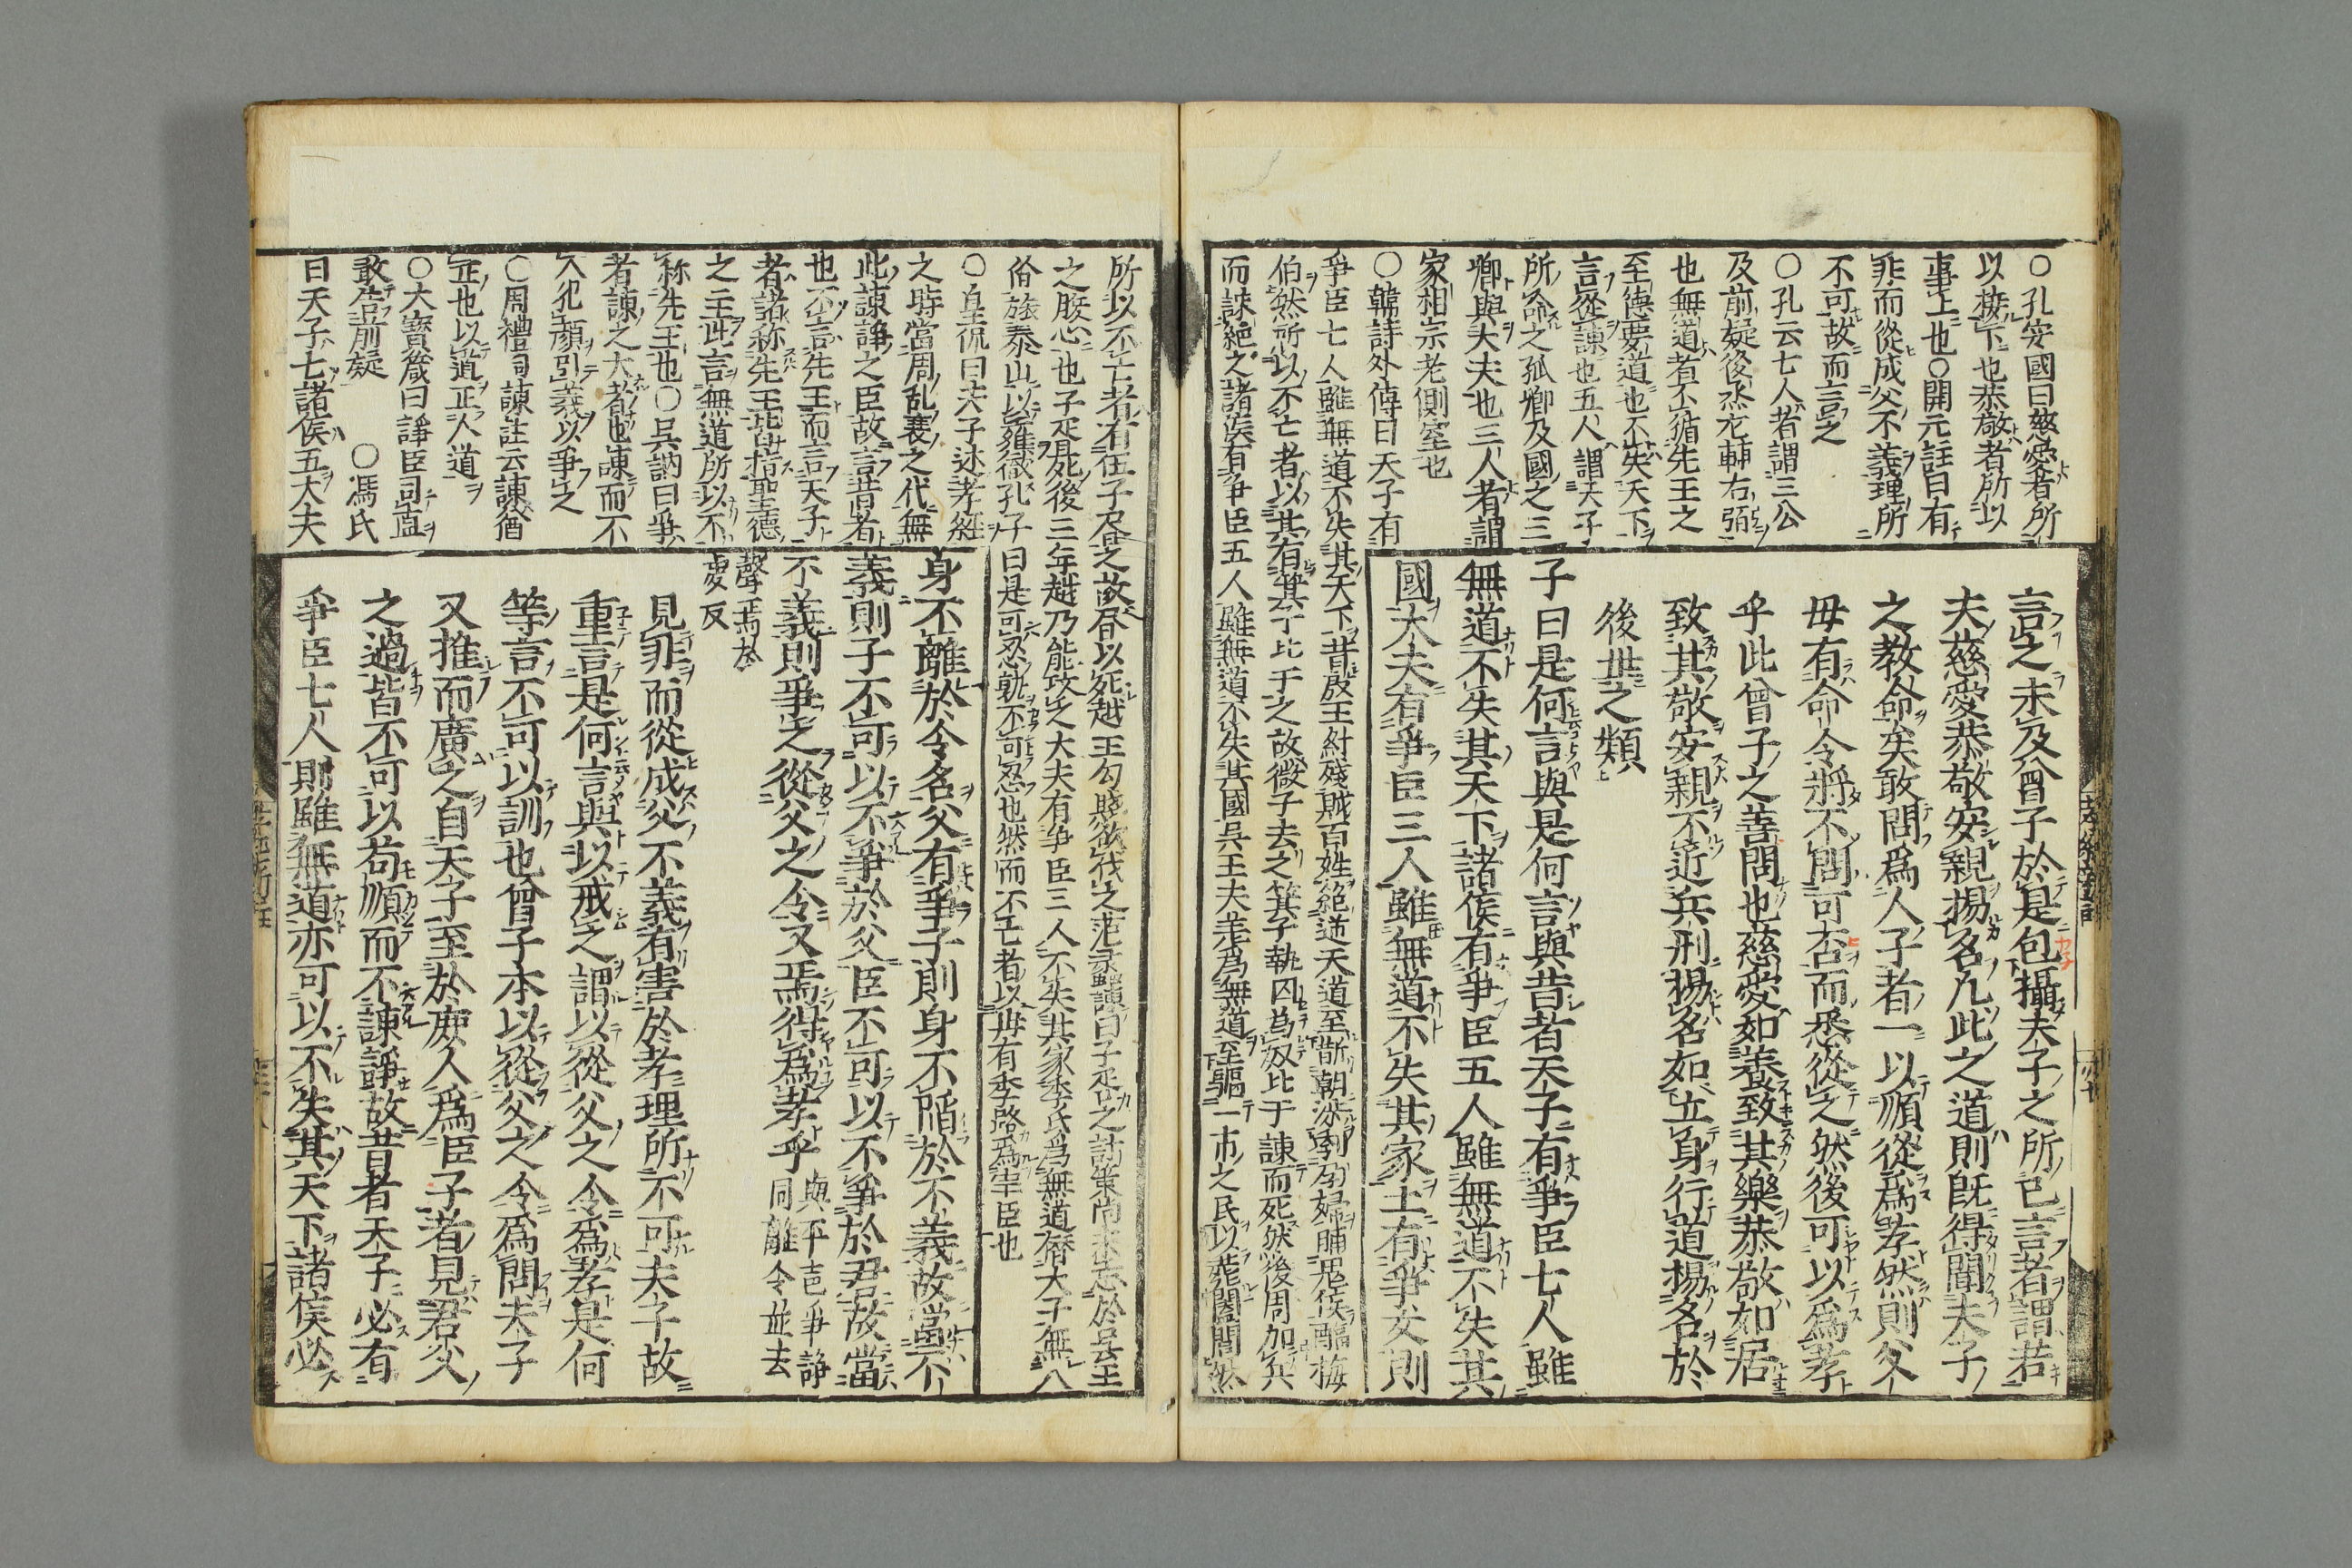 〇孔安國曰慈愛者所
以接下也恭敬者所以
事上也〇開元註曰有
非而從成父不義理所
不可故而言之
〇孔云七人者謂三公
及前疑後丞左輔右弼
也無道者不循先王之
至德要道也不失天下
言從諫也五人謂天子
所命之孤卿及國之三
卿與大夫也三人者謂
家相宗老側室也
〇韓詩外傳曰天子有
爭臣七人雖無道不失其天下昔殷王紂殘賊百姓絕逆天道至斮朝涉刳孕婦脯鬼侯醢梅
伯然所以不亡者以其有箕子比干之故微子去之箕子執囚為奴比干諫而死然後周加兵
而誅絕之諸侯有爭臣五人雖無道不失其國吳王夫差為無道至驅一市之民以葬闔閭然
言之未及曾子於是包攝夫子之所已言者謂若
夫慈愛恭敬安親揚名凡此之道則既得聞夫子
之教命矣敢問爲人子者一以順從爲孝然則父
毋有命令將不問可否而悉從之然後可以爲孝
乎此曾子之善問也慈愛如養致其樂恭敬如居
致其敬安親不近兵刑揚名如立身行道揚名於
後世之類
子曰是何言與是何言與昔者天子有爭臣七人雖
無道不失其天下諸侯有爭臣五人雖無道不失其
國大夫有爭臣三人雖無道不失其家士有爭友則
所以不亡者有伍子胥之故胥以死越王勾踐欲伐之范蠡諫曰子胥之計策尚未忘於吳王
之腹心也子胥死後三年越乃能攻之大夫有爭臣三人不失其家季氏爲無道僭天子舞八
佾旅泰山以雍徹孔子曰是可忍孰不可忍也然而不亡者以冉有季路爲宰臣也
〇皇侃曰夫子述孝經
之時當周乱衰之代無
此諫諍之臣故言昔者
也不言先王而言天子
者諸称先王皆指聖德
之主此言無道所以不
称先王也〇吳訥曰爭
者諫之大者也諫而不
入犯顔引義以爭之
〇周禮司諫註云諫猶
正也以道正人道
〇大寶箴曰諍臣司直
敢告前疑　〇馮氏
曰天子七諸侯五大夫
身不離於令名父有爭子則身不陷於不義故當不
義則子不可以不爭於父臣不可以不爭於君故當
不義則爭之從父之令又焉得爲孝乎 與平声爭諍同離令並去
聲焉於虔反
見非而從成父不義有害於孝理所不可夫子故
重言是何言與以戒之謂以從父之令爲孝是何
等言不可以訓也曾子本以從父之令爲問夫子
又推而廣之自天子至於庶人爲臣子者見君父
之過皆不可以苟順而不諫諍故昔者天子必有
爭臣七人則雖無道亦可以不失其天下諸侯必